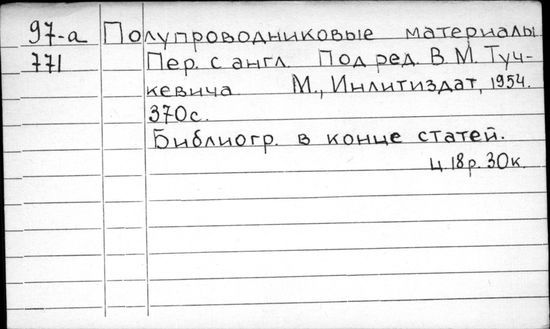 97-а Полупроводниковые материалы
771 Пер. с англ. Под ред. В. М. Туч-
кевича М., Инлитиздат, 1954.
370с.
Библиогр. в конце статей.
ц. 18р. 30к.